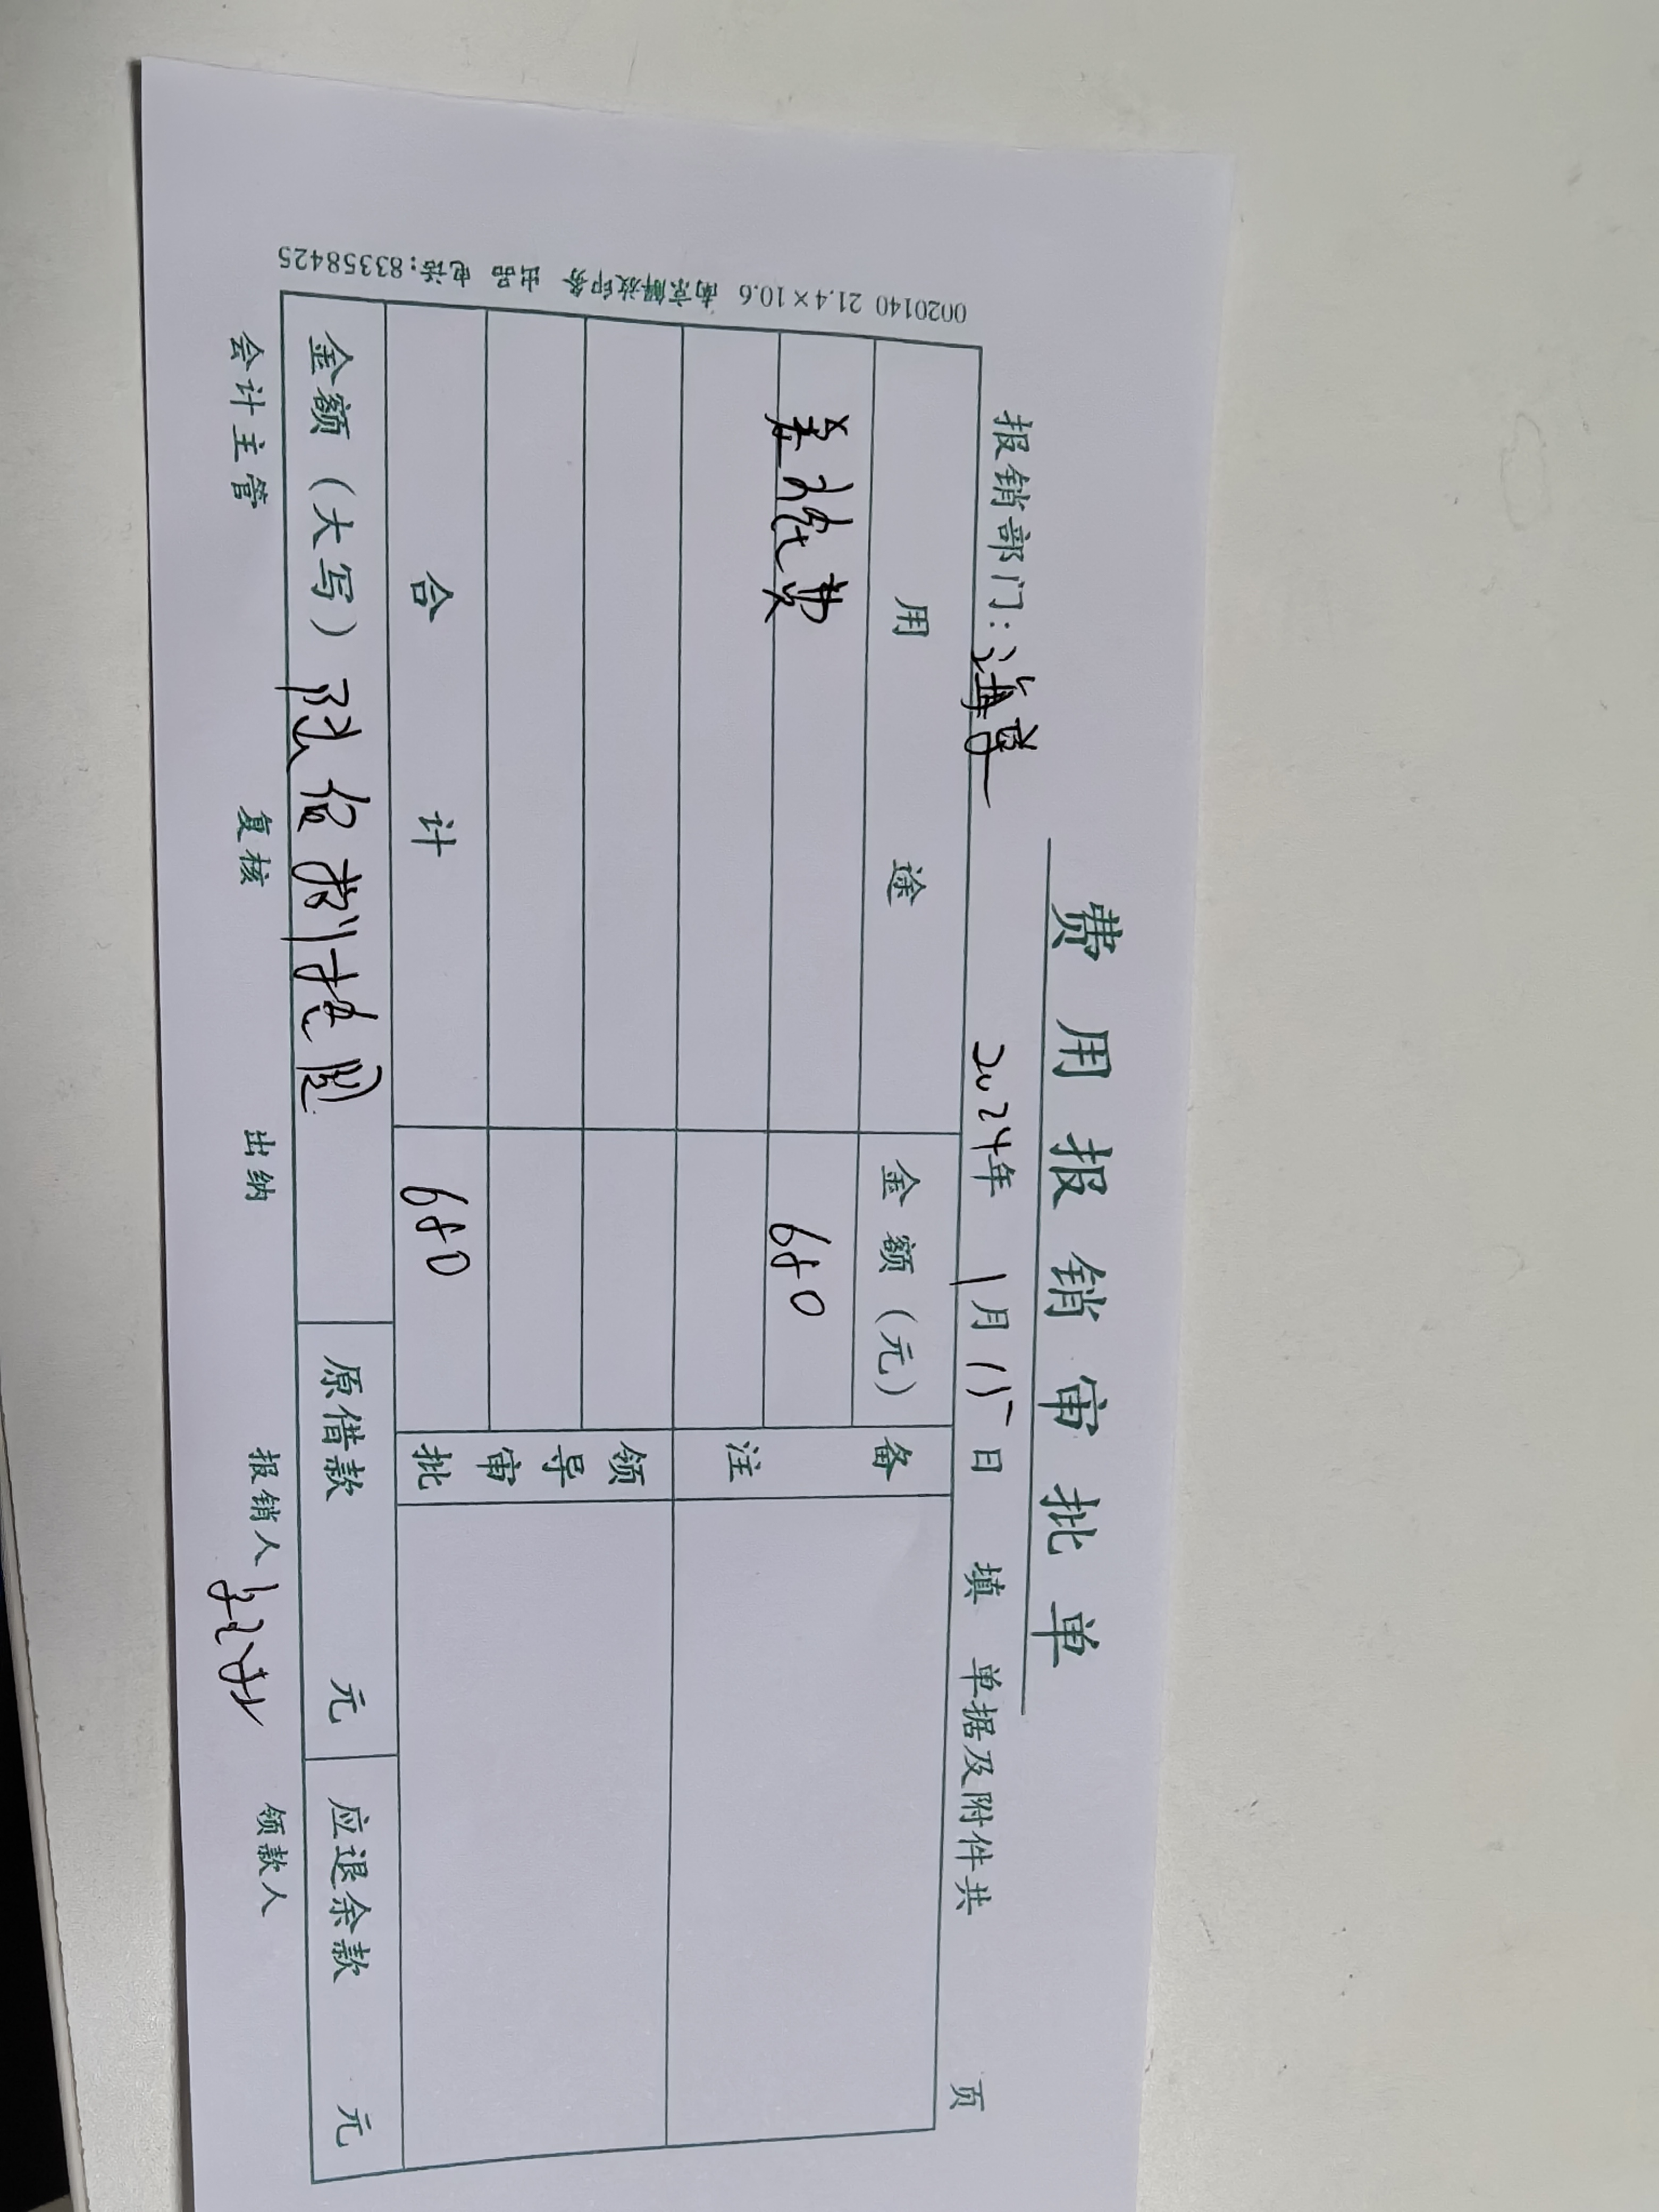 费用报销审批单
报销部门：海尊 2024年 1月 15日 填 单据及附件共 页
用途 金额（元） 备注
差旅费 680
领导审批
合计 680
金额（大写）陆佰捌拾圆 原借款 元 应退余款 元
会计主管 复核 出纳 报销人 领款人
0020140 21.4×10.6 南京解放印务 出品 电话:83358425